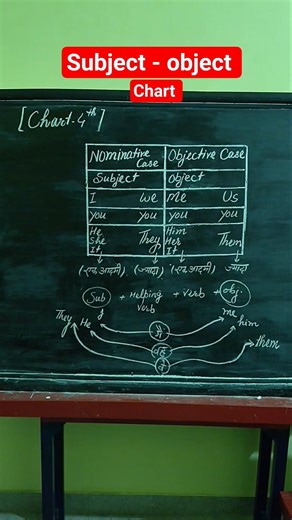 Subject - object
Chart
[Chart-4th]
Nominative Case Objective Case
Subject Object
I we me Us
You You You You
He She It They Him Her It Them
(एक आदमी) (ज्यादा) (एक आदमी) ज्यादा
Sub + Helping verb + verb + obj.
They He I मैं me him
वह
वे Them